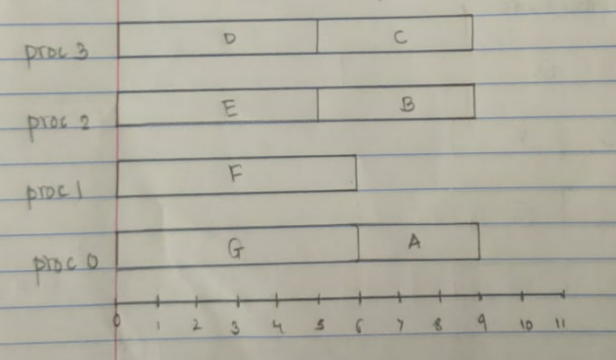 proc 3 D C
proc 2 E B
proc 1 F
proc 0 G A
0 1 2 3 4 5 6 7 8 9 10 11